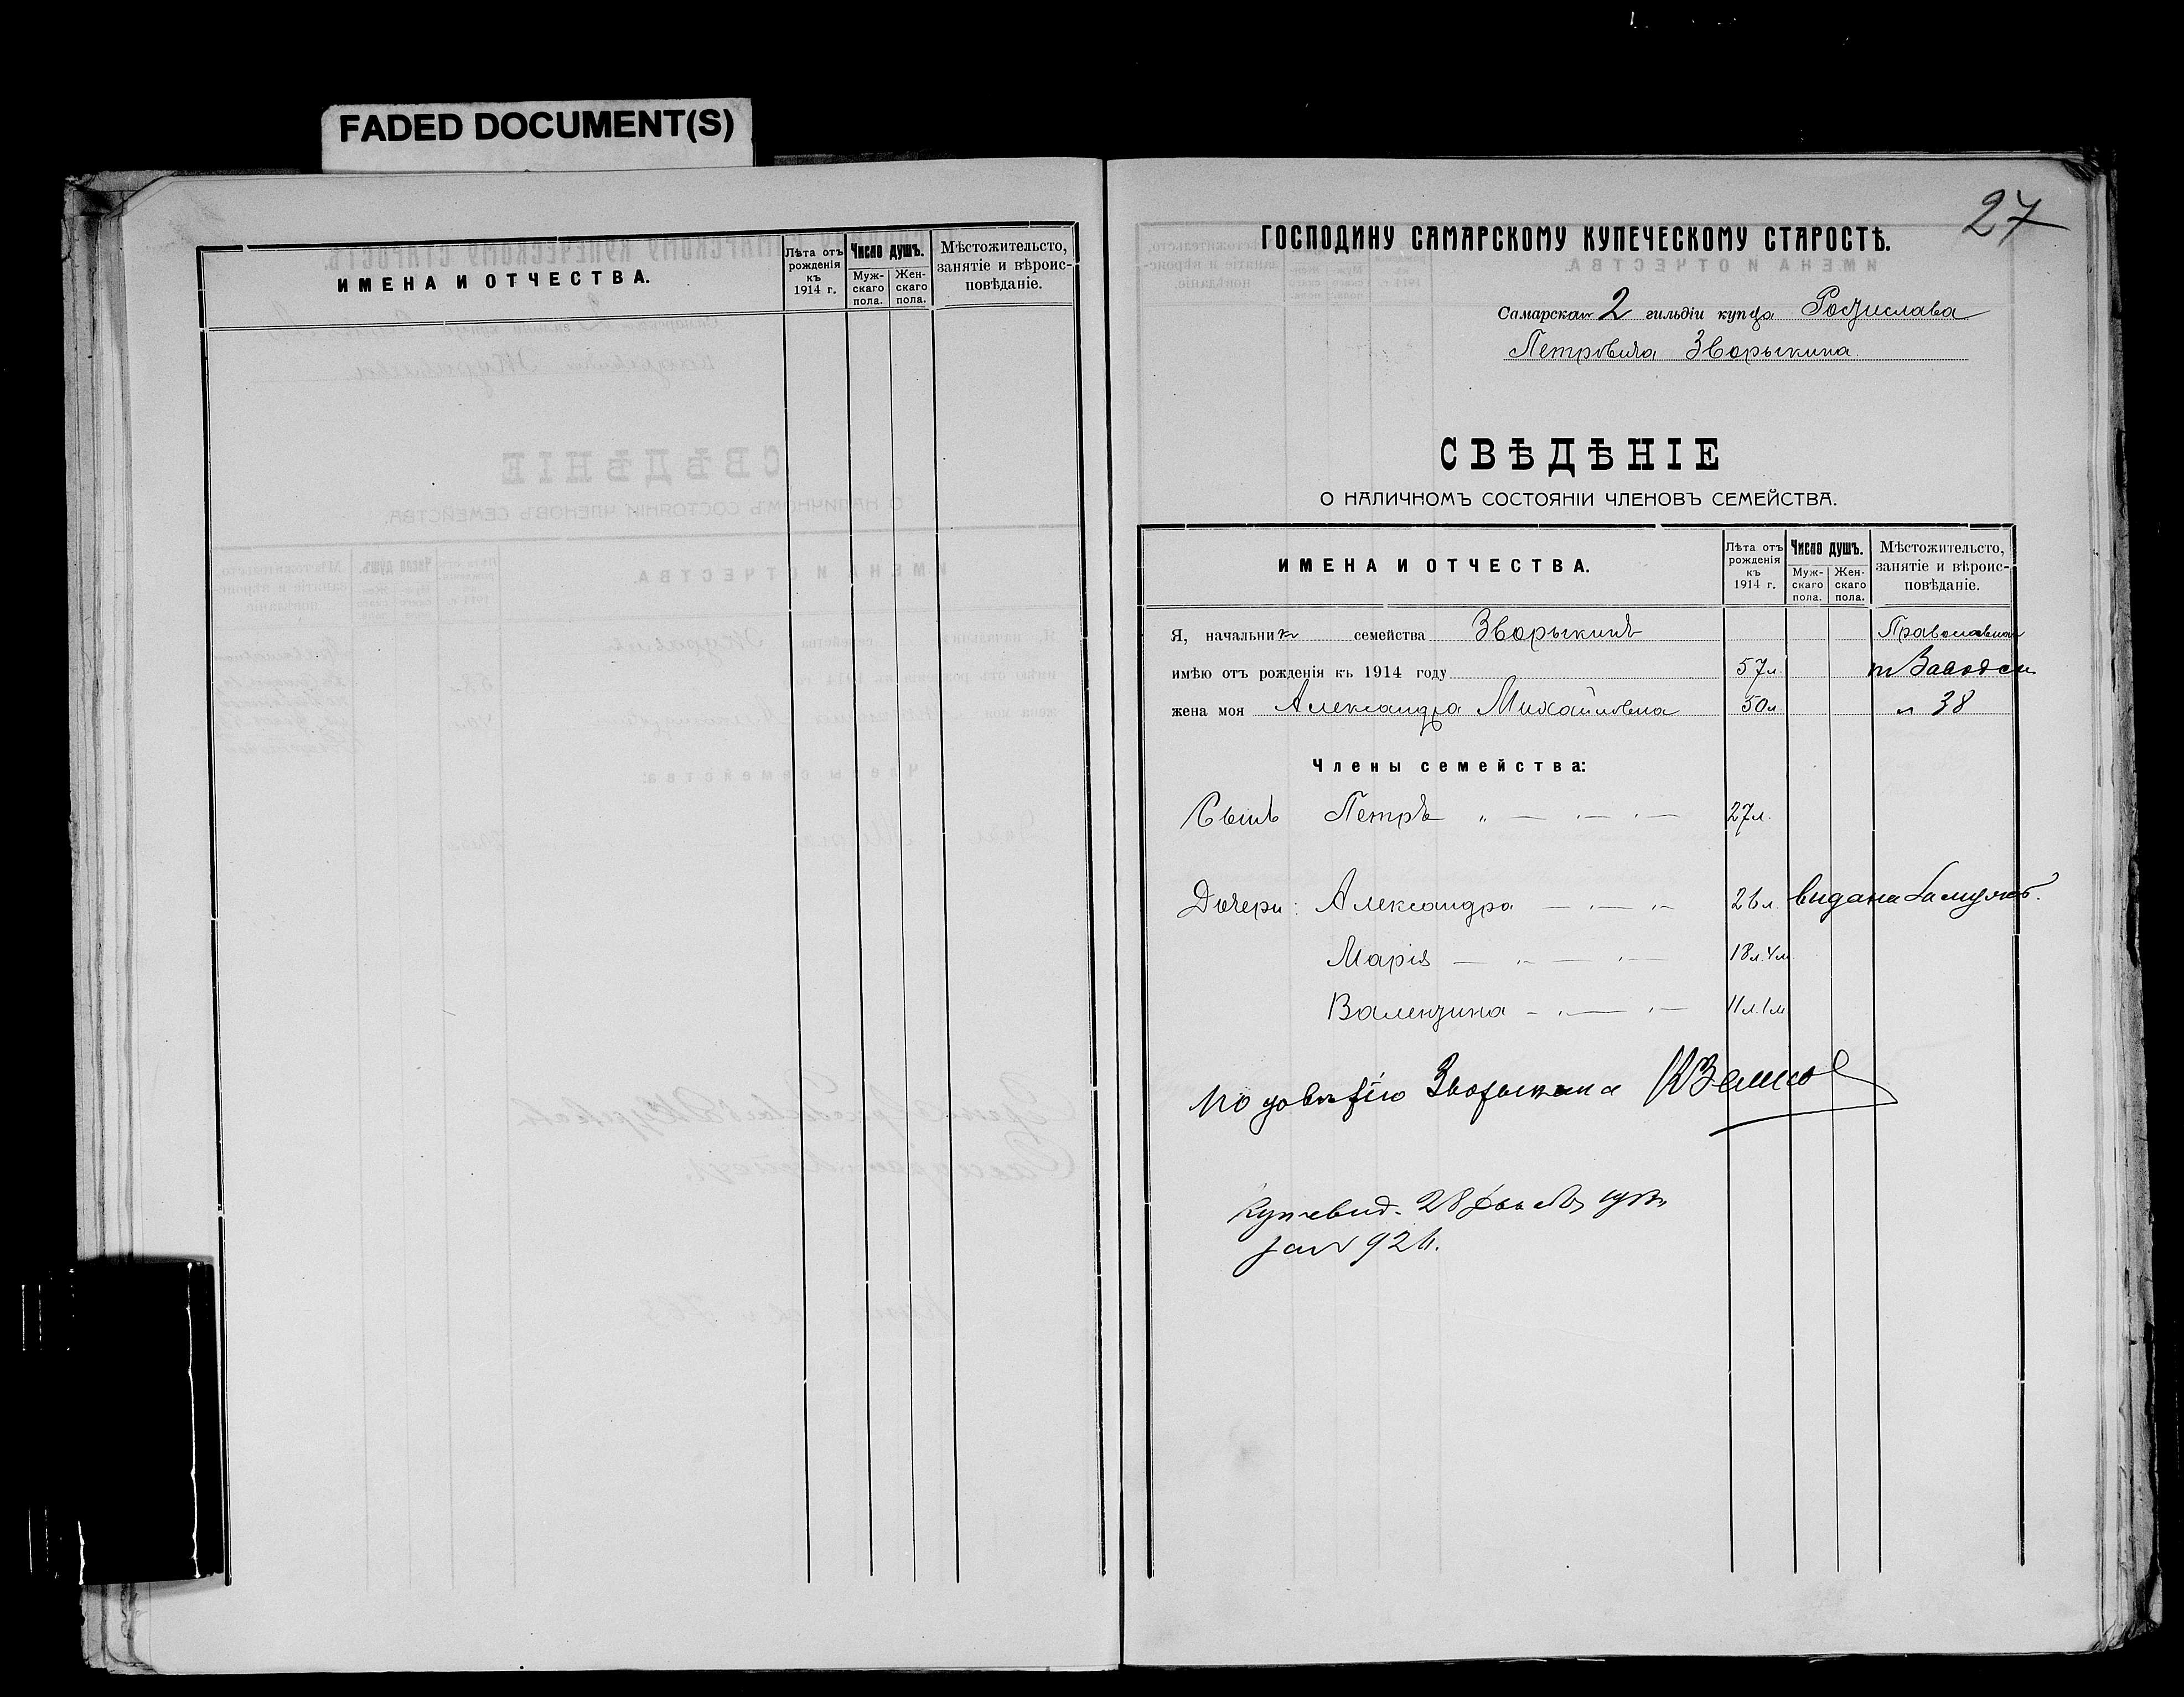 FADED DOCUMENT(S)
ИМЕНА И ОТЧЕСТВА.
Лѣта отъ рожденія къ 1914 г.
Число душъ.
Муж-скаго пола.
Жен-скаго пола.
Мѣстожительсто, занятіе и вѣроис-повѣданіе.
27
ГОСПОДИНУ САМАРСКОМУ КУПЕЧЕСКОМУ СТАРОСТѢ.
Самарскаго 2 гильдіи купца Ростислава
Петровича Зворыкина.
СВѢДѢНІЕ
О НАЛИЧНОМЪ СОСТОЯНІИ ЧЛЕНОВЪ СЕМЕЙСТВА.
ИМЕНА И ОТЧЕСТВА.
Лѣта отъ рожденія къ 1914 г.
Число душъ.
Муж-скаго пола.
Жен-скаго пола.
Мѣстожительсто, занятіе и вѣроис-повѣданіе.
Я, начальникъ семейства Зворыкинъ Православная
имѣю отъ рожденія къ 1914 году 57 л.
жена моя Александра Михайловна 50 л. 38
Члены семейства:
Сынъ Петръ " — " — " — 27 л.
Дочери: Александра — " — " — 26 л. выдана замужъ.
Марія — " — " — 18 л. 4 м.
Валентина — " — " — 11 л. 1 м.
По довѣрію Зворыкина
28
926.